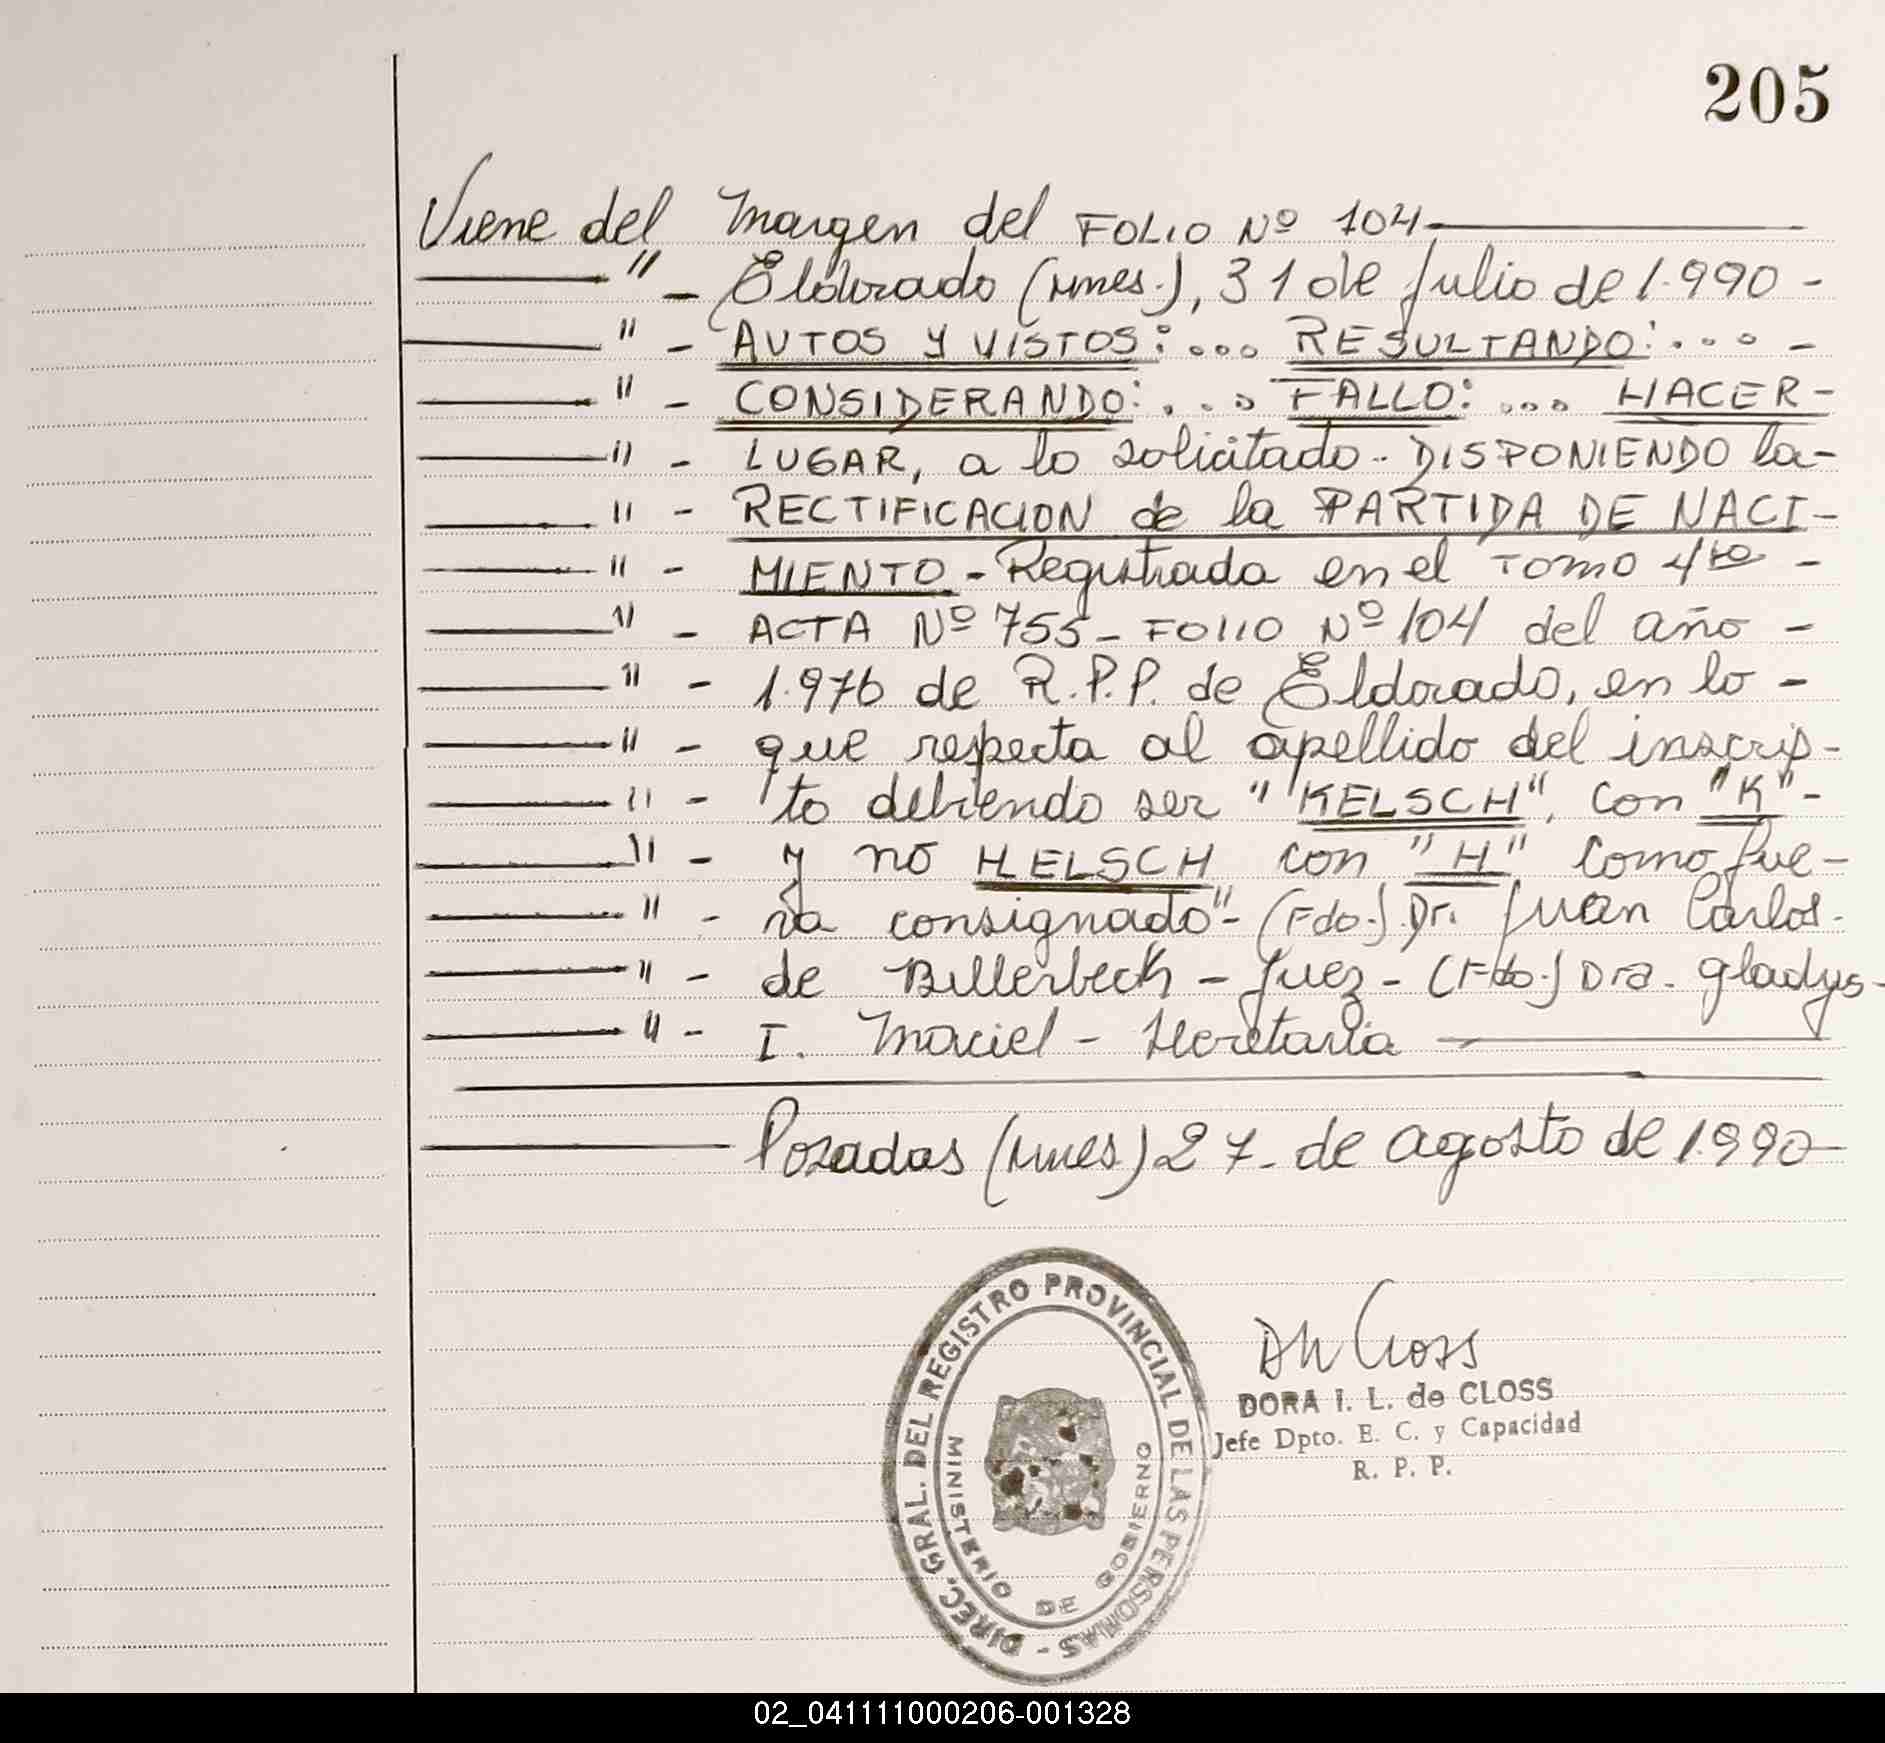 205
Viene del Margen del FOLIO Nº 104
" - Eldorado (Mnes.), 31 de Julio de 1.990 -
" - AUTOS Y VISTOS: ... RESULTANDO: ... -
" - CONSIDERANDO: ... FALLO: ... HACER -
" - LUGAR, a lo solicitado - DISPONIENDO la -
" - RECTIFICACION de la PARTIDA DE NACI -
" - MIENTO - Registrada en el Tomo 4to -
" - ACTA Nº 755 - FOLIO Nº 104 del año -
" - 1.976 de R.P.P. de Eldorado, en lo -
" - que respecta al apellido del inscrip -
" - to debiendo ser "KELSCH", con "K" -
" - y no HELSCH con "H" como fue -
" - ra consignado" - (Fdo.) Dr. Juan Carlos -
" - de Billerbeck - Juez - (Fdo.) Dra. Gladys -
" - I. Maciel - Secretaria
Posadas (Mnes) 27 - de agosto de 1.990
DIREC. GRAL. DEL REGISTRO PROVINCIAL DE LAS PERSONAS -
MINISTERIO DE GOBIERNO
DORA I. L. de CLOSS
Jefe Dpto. E. C. y Capacidad
R. P. P.
02_041111000206-001328